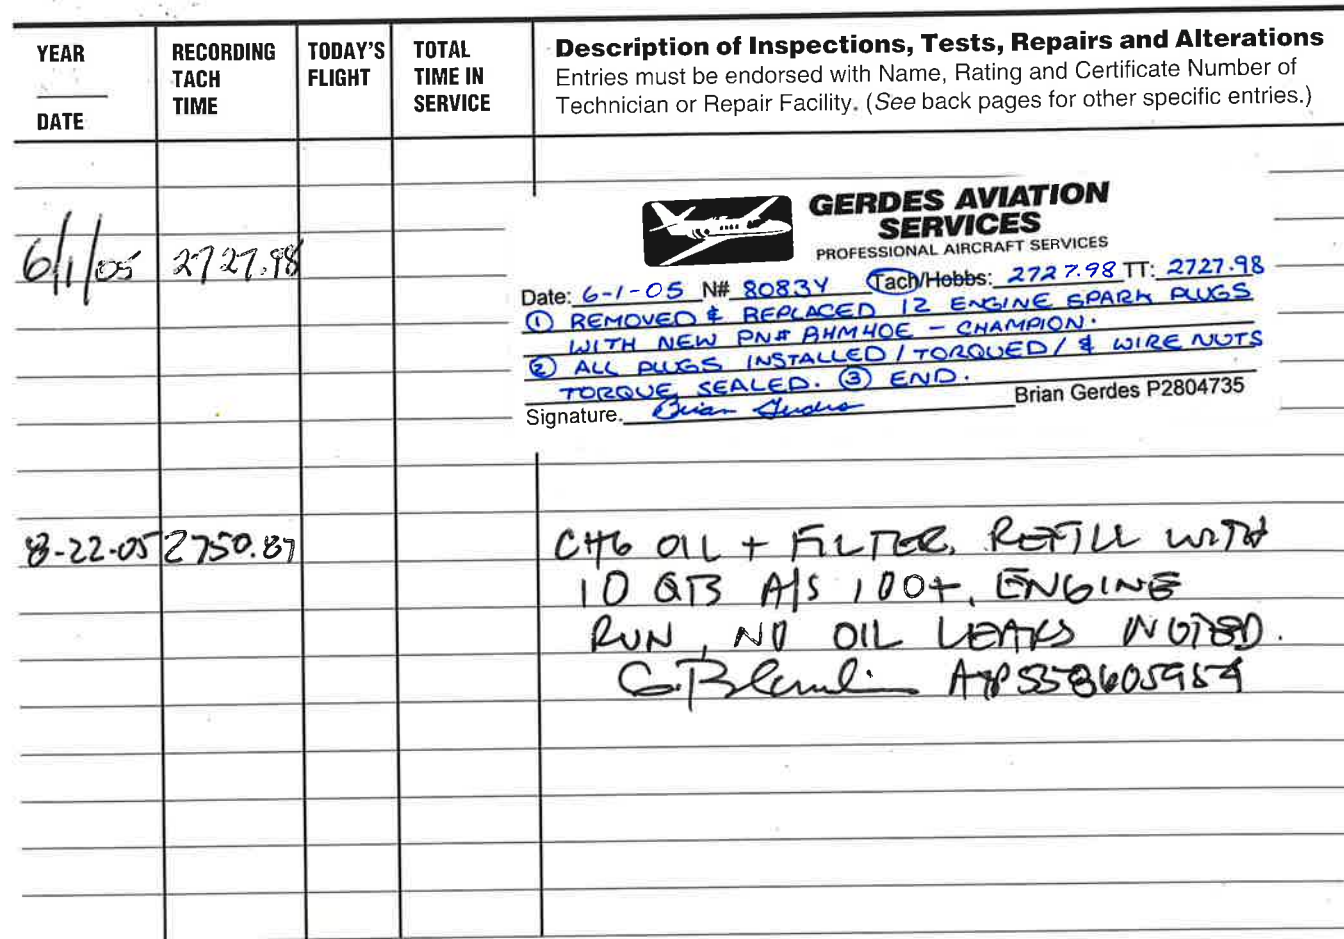 YEAR
DATE
RECORDING
TACH
TIME
TODAY'S
FLIGHT
TOTAL
TIME IN
SERVICE
Description of Inspections, Tests, Repairs and Alterations
Entries must be endorsed with Name, Rating and Certificate Number of
Technician or Repair Facility. (See back pages for other specific entries.)
6/1/05 2727.98
GERDES AVIATION
SERVICES
PROFESSIONAL AIRCRAFT SERVICES
Date: 6-1-05 N# 8083Y Tach/Hobbs: 2727.98 TT: 2727.98
① REMOVED & REPLACED 12 ENGINE SPARK PLUGS
WITH NEW PN# RHM40E - CHAMPION.
② ALL PLUGS INSTALLED / TORQUED / & WIRE NUTS
TORQUE SEALED. ③ END.
Signature. Brian Gerdes Brian Gerdes P2804735
8-22-05 2750.87 CHG OIL + FILTER. REFILL WITH
10 QTS A/S 100+, ENGINE
RUN, NO OIL LEAKS NOTED.
A&P 558605954